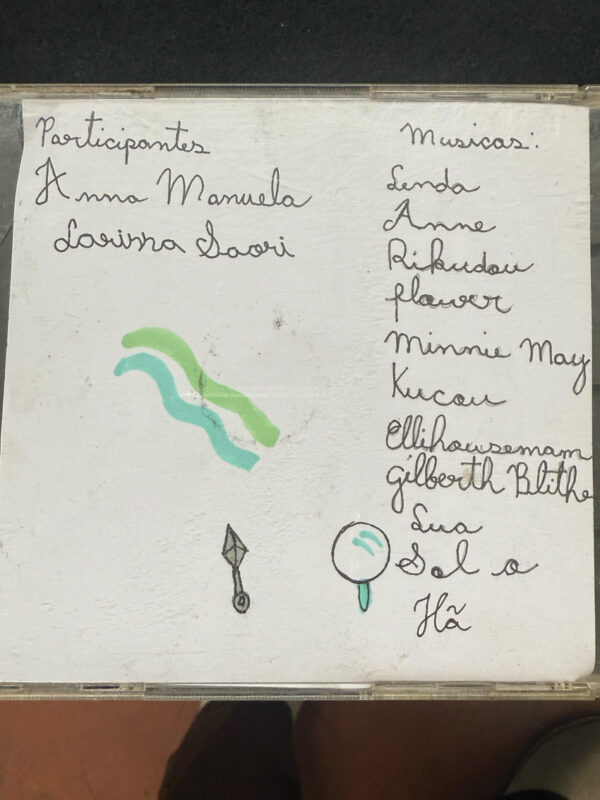 Participantes
Anna Manuela
Larissa Saori
Musicas:
Lenda
Anne
Rikudou
flower
Minnie May
Kucou
Ellihousemam
Gilberth Blithe
Lua
Sol o
Hã